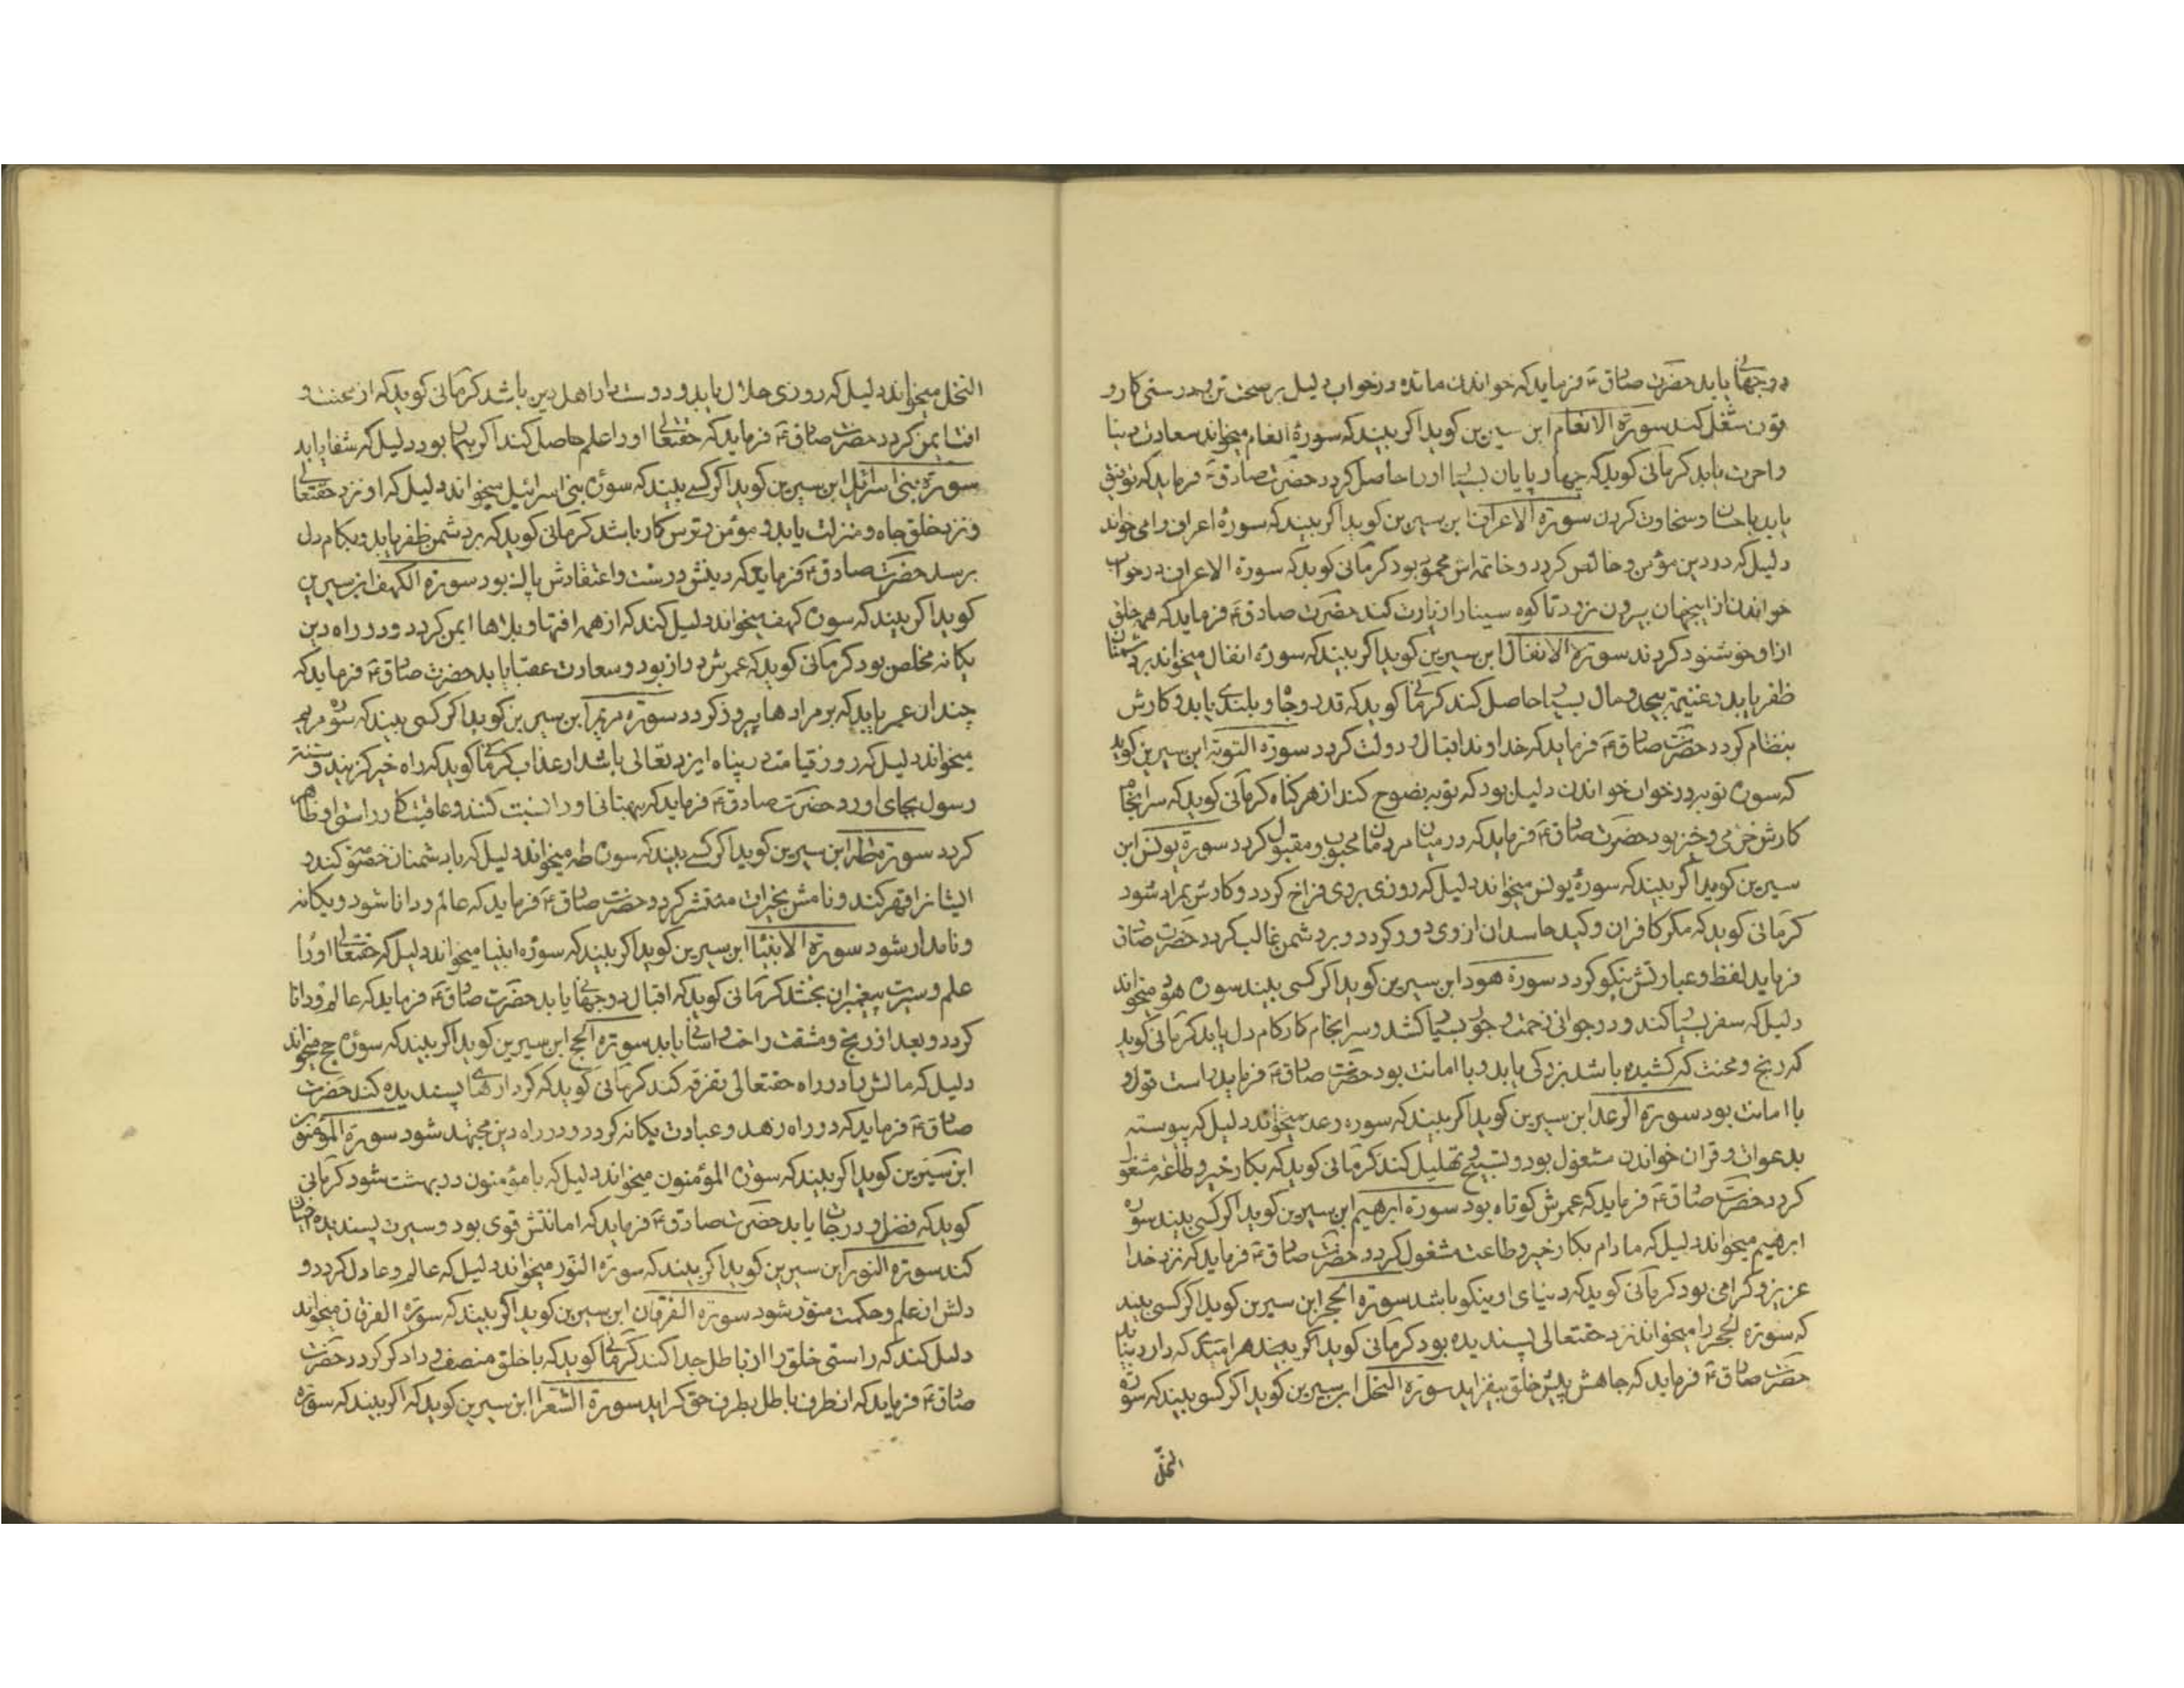 دوجهانی یابد حضرت صادق ع فرماید که خواندن مائده در خواب دلیل بر سخت تن و درستی کار و
قوت شغل کند سورة الانعام ابن سیرین کوید اکر بیند که سورهٔ انعام میخواند سعادت دنیا
واخرت یابد کرمانی کوید که چهار پایان بسیار اورا حاصل کردد حضرت صادق ع فرماید که توفیق
یابد باحسان وسخاوت کردن سورة الاعراف ابن سیرین کوید اکر بیند که سورهٔ اعراف را می خواند
دلیل که در دین مؤمن و خالص کردد و خاتمه اش محمود بود کرمانی کوید که سورة الاعراف در خواب
خواندن از اینجهان بیرون نرود تا کوه سینا را زیارت کند حضرت صادق ع فرماید که همه خلق
ازاو خوشنود کردند سورة الانفال ابن سیرین کوید اکر بیند که سورهٔ انفال میخواند بر دشمنان
ظفر یابد و غنیمة بیحد و مال بسیار حاصل کند کرمانی کوید که قدر و جاه و بلندی یابد و کارش
بنظام کردد حضرت صادق ع فرماید که خداوند اقبال و دولت کردد سورة التوبة ابن سیرین کوید
که سوره توبه در خواب خواندن دلیل بود که توبه نصوح کند از هر کناه کرمانی کوید که سرانجام
کارش خرمی و خیر بود حضرت صادق ع فرماید که در میان مردمان محبوب و مقبول کردد سورة یونس ابن
سیرین کوید اکر بیند که سورهٔ یونس میخواند دلیل که روزی بروی فراخ کردد و کارش بمراد شود
کرمانی کوید که مکر کافران و کید حاسدان از وی دور کردد و بر دشمن غالب کردد حضرت صادق
فرماید لفظ و عبارتش نیکو کردد سورة هود ابن سیرین کوید اکر کسی بیند سوره هود میخواند
دلیل که سفر بسیار کند و در جوانی زحمت و بسیار کشد و سرانجام کار کام دل یابد کرمانی کوید
که رنج و محنت که کشیده باشد بزرکی یابد و با امانت بود حضرت صادق ع فرماید راست قول و
با امانت بود سورة الرعد ابن سیرین کوید اکر بیند که سوره رعد میخواند دلیل که پیوسته
بدعوات و قران خواندن مشغول بود و تسبیح و تهلیل کند کرمانی کوید که بکار خیر و طاعة مشغول
کردد حضرت صادق ع فرماید که عمرش کوتاه بود سورة ابرهیم ابن سیرین کوید اکر کسی بیند سوره
ابرهیم میخواند دلیل که مادام بکار خیر و طاعت مشغول کردد حضرت صادق ع فرماید که نزد خدا
عزیز و کرامی بود کرمانی کوید که دنیای او نیکو باشد سورة الحجر ابن سیرین کوید اکر کسی بیند
که سورة الحجر را میخواند نزد حقتعالی پسندیده بود کرمانی کوید اکر بیند هر امیدی که دارد بیابد
حضرت صادق ع فرماید که جاهش پیش خلق بیفزاید سورة النحل ابن سیرین کوید اکر کسی بیند که سورة
النحل
النحل میخواند دلیل که روزی حلال یابد و دوست دار اهل دین باشد کرمانی کوید که از محنت و
افت ایمن کردد حضرت صادق ع فرماید که حقتعالی اورا علم حاصل کند اکر بیمار بود دلیل که شفا یابد
سورة بنی اسرائیل ابن سیرین کوید اکر کسی بیند که سورهٔ بنی اسرائیل میخواند دلیل که او نزد حقتعالی
و نزد خلق جاه و منزلت یابد و مؤمن و ترس کار باشد کرمانی کوید که بر دشمن ظفر یابد و بکام دل
برسد حضرت صادق ع فرماید که دینش درست و اعتقادش پاک بود سورة الکهف ابن سیرین
کوید اکر بیند که سوره کهف میخواند دلیل کند که از همه افتها و بلاها ایمن کردد و در راه دین
یکانه مخلص بود کرمانی کوید که عمرش دراز بود و سعادت عقبا یابد حضرت صادق ع فرماید که
چندان عمر یابد که بر مرادها پیروز کردد سورة مریم ابن سیرین کوید اکر کسی بیند که سوره مریم
میخواند دلیل که روز قیامت در پناه ایزد تعالی باشد از عذاب کرمانی کوید که راه خیر کزیند و سنت
رسول بجای اورد حضرت صادق ع فرماید که بهتانی اورا نسبت کنند و عاقبت کار راستی او ظاهر
کردد سورة طه ابن سیرین کوید اکر کسی بیند که سوره طه میخواند دلیل که با دشمنان خصومت کند و
ایشانرا قهر کند و نامش بخیرات منتشر کردد حضرت صادق ع فرماید که عالم و دانا شود و یکانه
و نامدار شود سورة الانبیا ابن سیرین کوید اکر بیند که سورهٔ انبیا میخواند دلیل که حقتعالی اورا
علم و سیرت پیغمبران بخشد کرمانی کوید که اقبال دوجهانی یابد حضرت صادق ع فرماید که عالم و دانا
کردد و بعد از رنج و مشقت راحت و اسانی یابد سورة الحج ابن سیرین کوید اکر بیند که سورهٔ حج میخواند
دلیل که مالش را در راه حقتعالی تفرقه کند کرمانی کوید که کردارهای پسندیده کند حضرت
صادق ع فرماید که در راه زهد و عبادت یکانه کردد و در راه دین مجتهد شود سورة المؤمنون
ابن سیرین کوید اکر بیند که سورة المؤمنون میخواند دلیل که با مؤمنون در بهشت شود کرمانی
کوید که فضل و درجات یابد حضرت صادق ع فرماید که امانتش قوی بود و سیرت پسندیده
کند سورة النور ابن سیرین کوید اکر بیند که سورة النور میخواند دلیل که عالم و عادل کردد و
دلش از علم و حکمت منور شود سورة الفرقان ابن سیرین کوید اکر بیند که سورة الفرقان میخواند
دلیل کند که راستی خلق را از باطل جدا کند کرمانی کوید که با خلق منصف و دادکر کردد حضرت
صادق ع فرماید که از طرف باطل بطرف حق کراید سورة الشعرا ابن سیرین کوید که اکر بیند که سورة